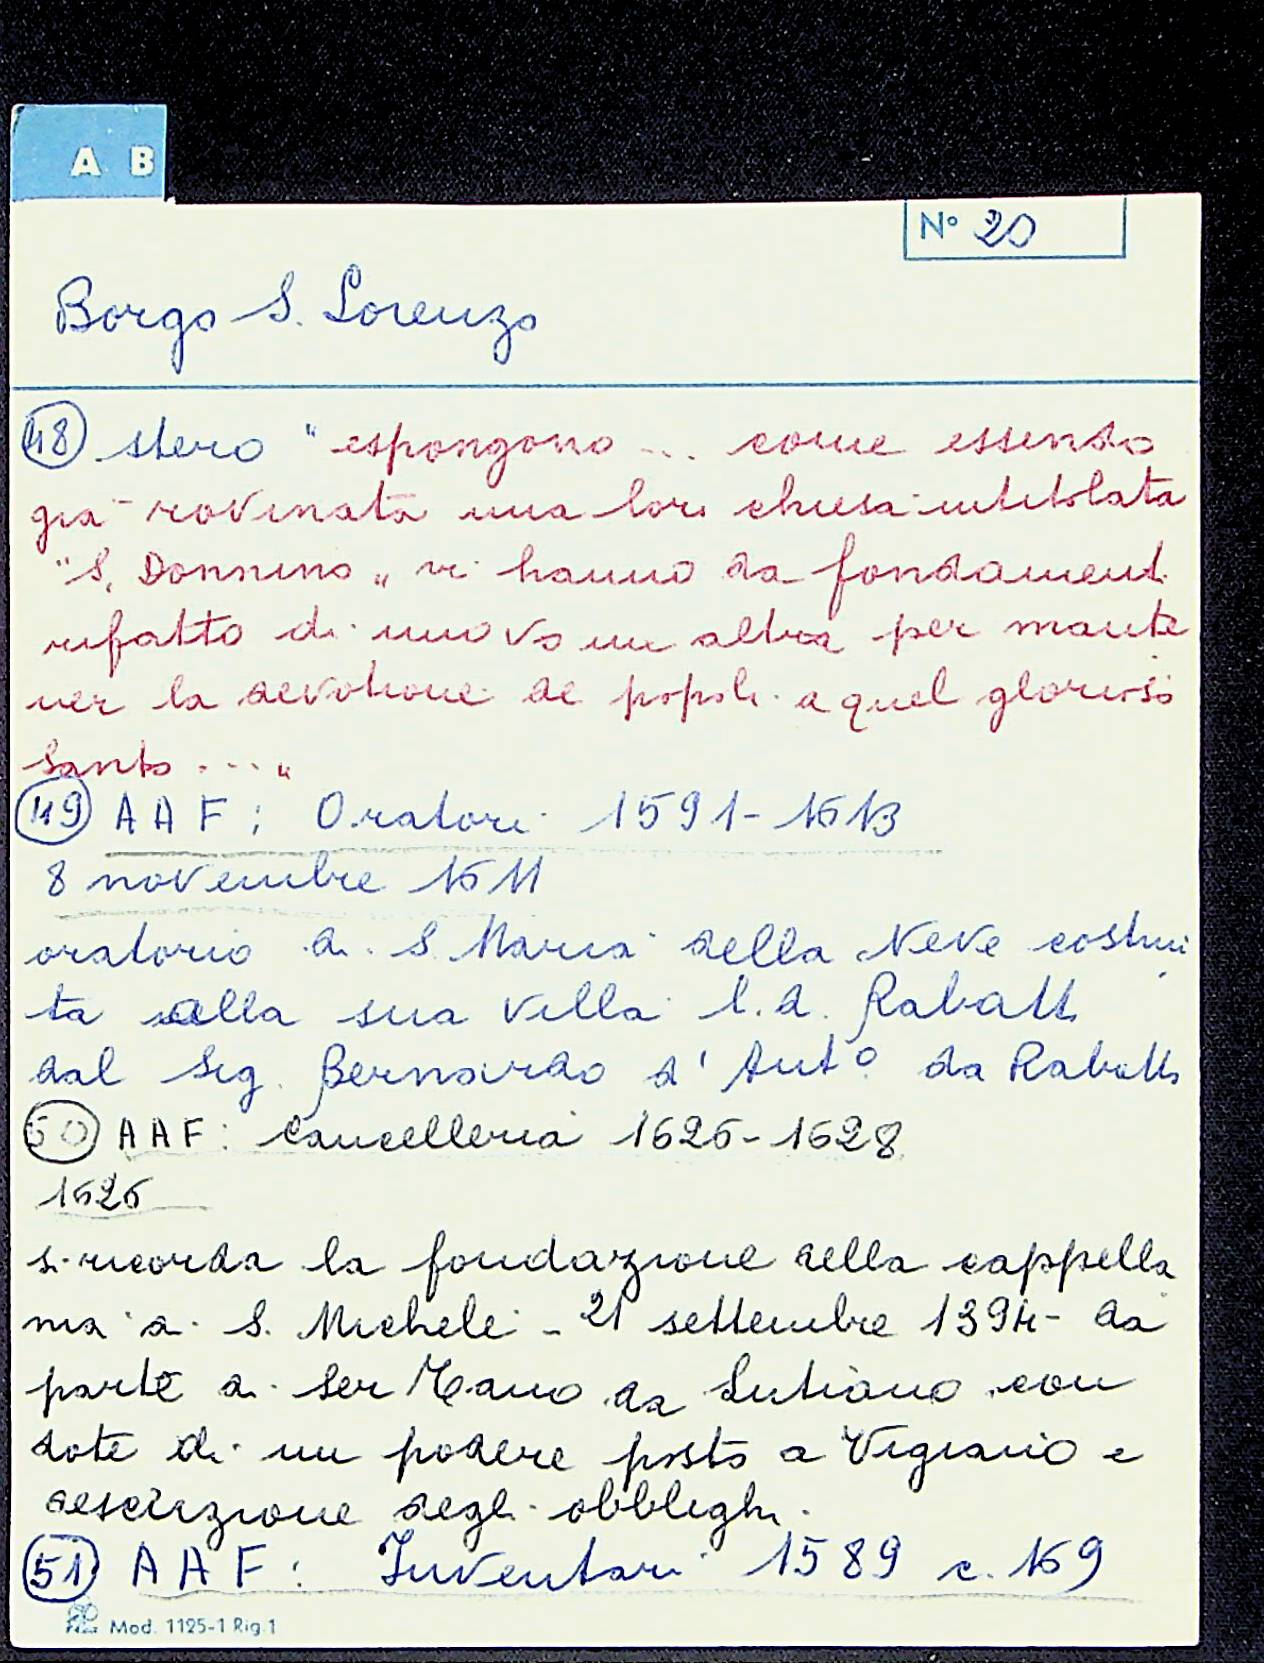 A B
N° 20
Borgo S. Lorenzo
(48) stero "espongono ... come essendo
già rovinata una lor chiesa intitolata
"S. Donnino" vi hanno da fondament
rifatto di nuovo un altra per mante
ner la devotione de popoli a quel glorioso
santo ...."
(49) AAF: Oratori 1591-1613
8 novembre 1611
oratorio di S. Maria della Neve costrui
ta alla sua villa l.d. Rabatti
dal Sig. Bernardo d'Ant° da Rabatta
(50) AAF: Cancelleria 1626-1628
1626
si ricorda la fondazione della cappella
nia di S. Michele - 21 settembre 1394 - da
parte di Ser da Lutiano con
dote di un podere posto a Vigiano e
descrizione degli obblighi.
(51) AAF: Inventari 1589 c. 169
Mod. 1125-1 Rig.1